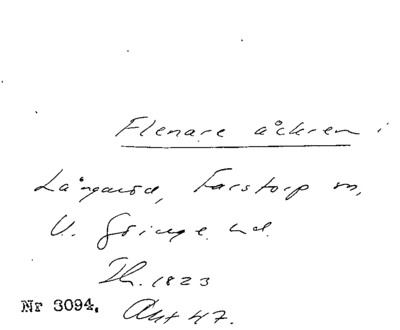 Flenare åckren i
Långaröd, Farstorp sn,
V. Göinge hd.
Sk. 1823
Nr 3094. Akt 47.